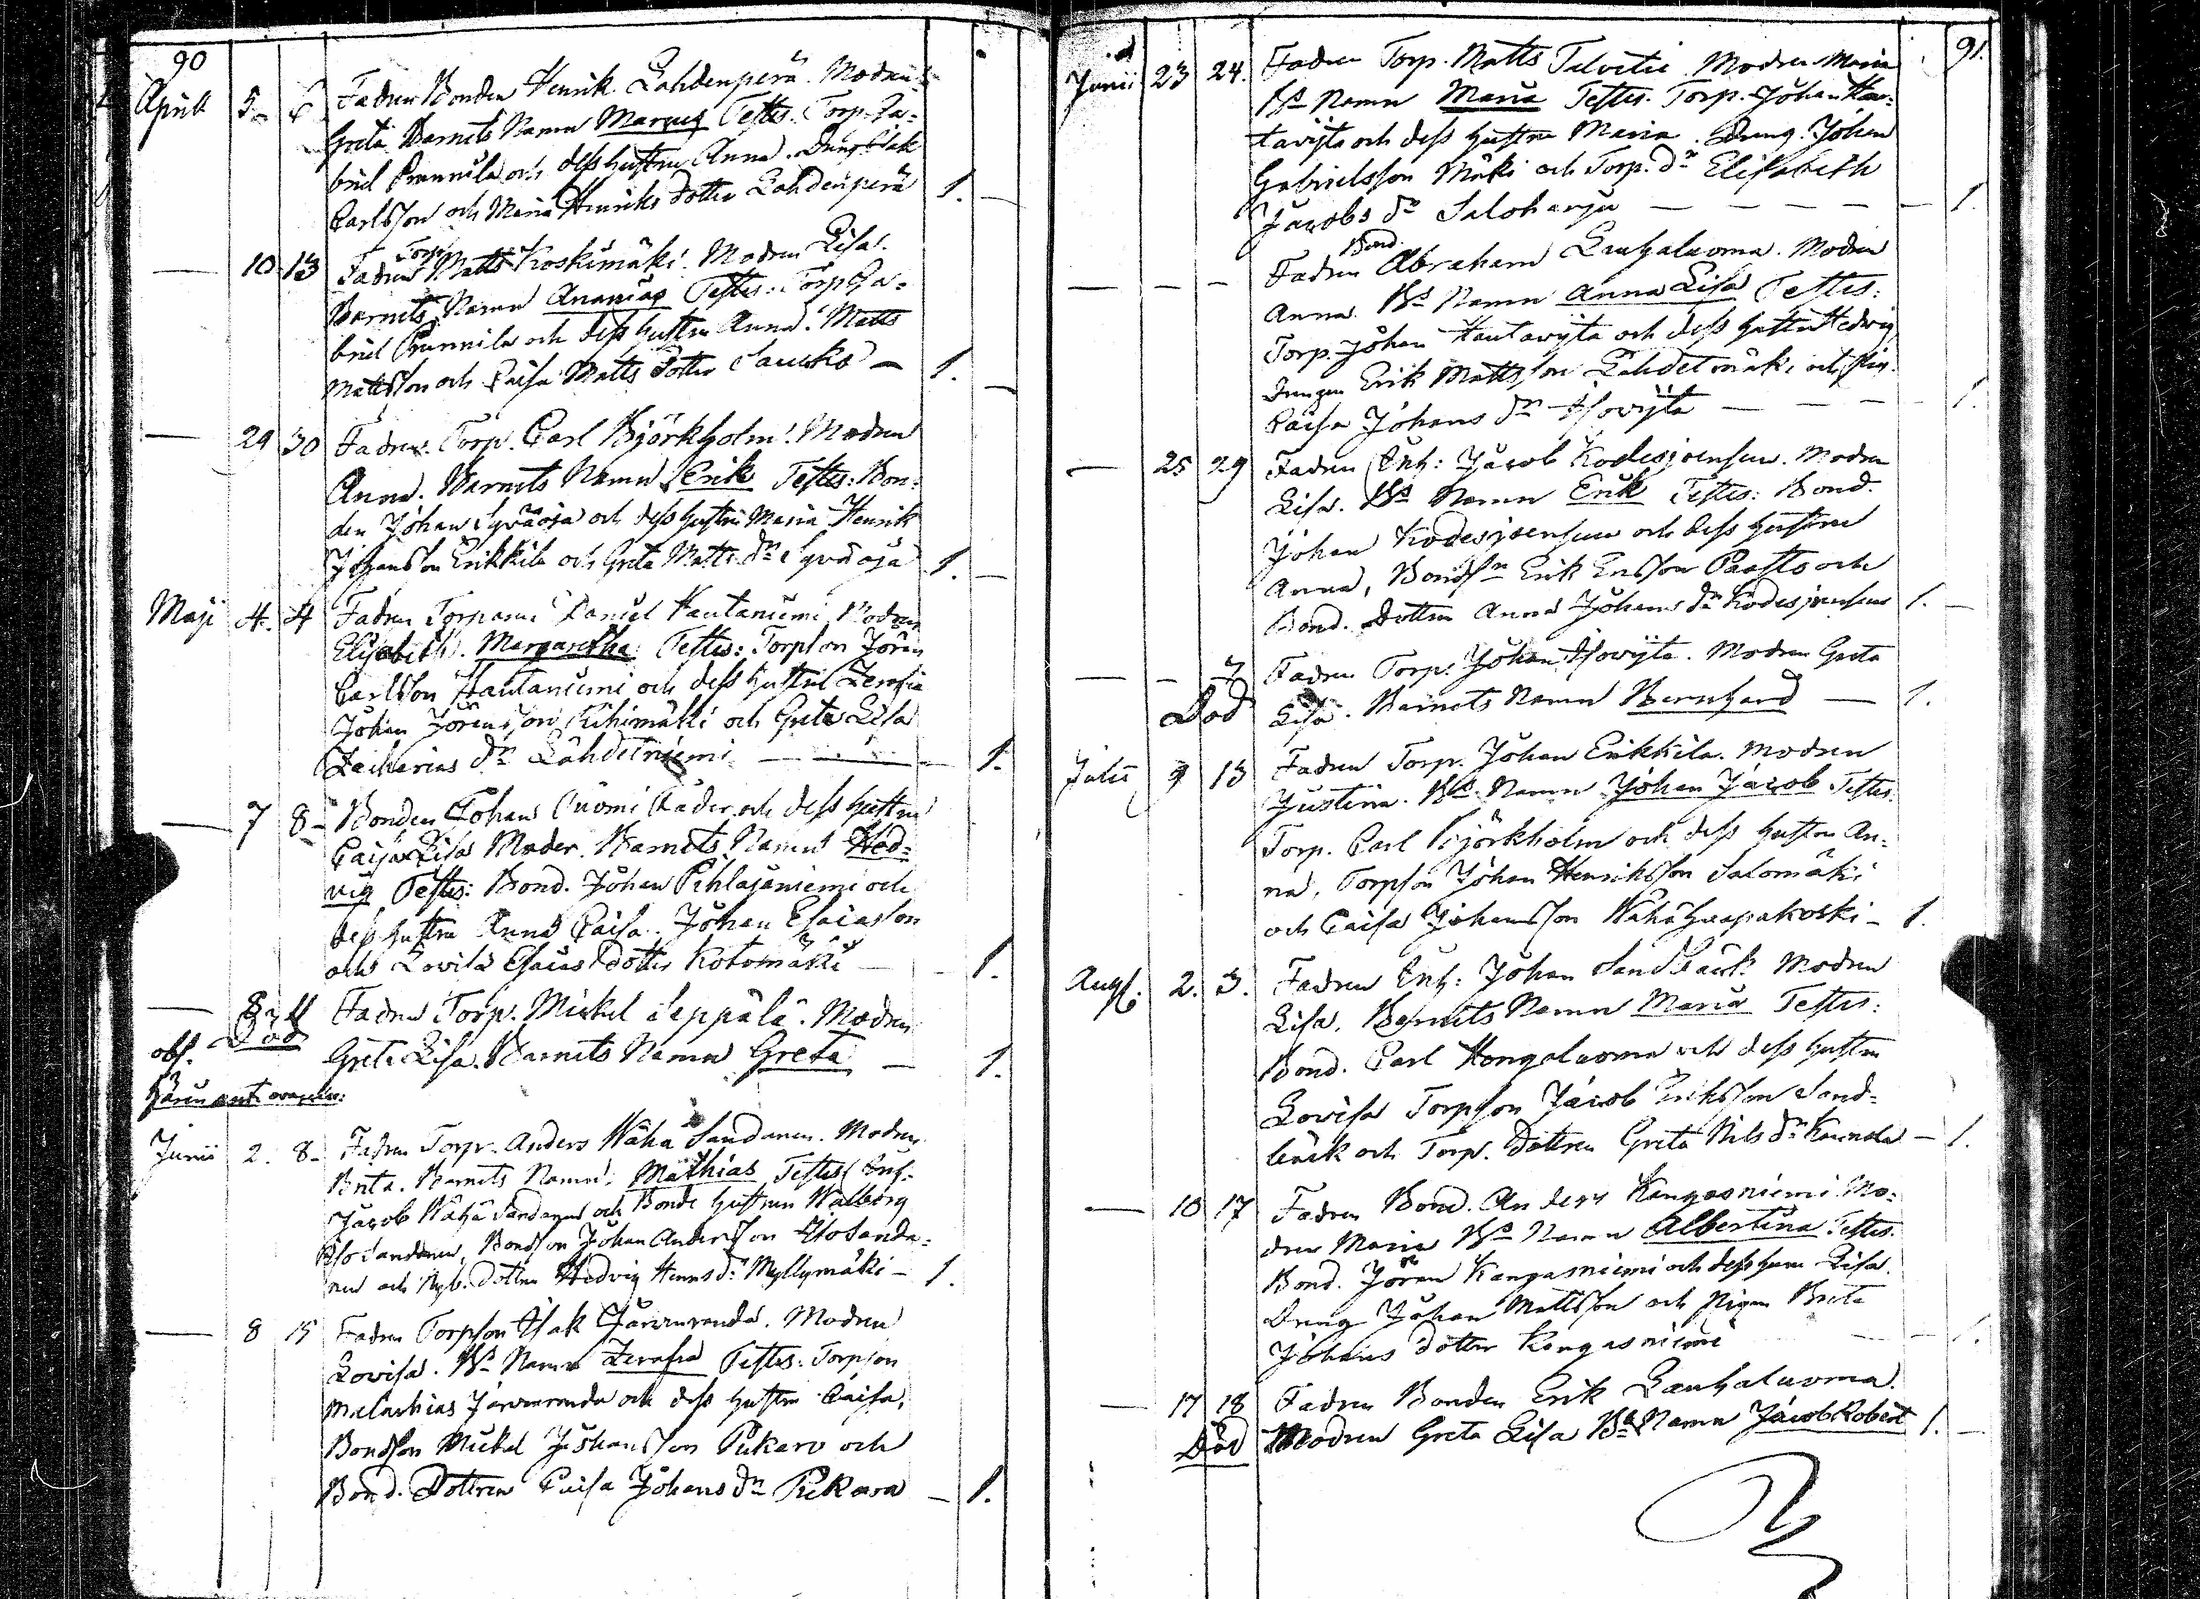 90
April 5 6 Fadren Bonden Henrik Lahdenperä. Modren
Greta Barnets Namn Marcus Testes: Torp. Ga=
briel Prunnila och dess hustru Anna. Dreng Isak
Carlsson och Maria Henriks dotter Lahdenperä 1.
— 10 13 Fadren Torp. Matts Koskimäki. Modren Lisa.
Barnets Namn Ananias Testes: Torp Ga=
briel Prunnila och dess hustru Anna. Matts
Mattsson och Caisa Matts Dotter Saucko — 1.
— 29 30 Fadren Torp. Carl Björkholm. Modren
Anna. Barnets Namn Erik Testes: Bon=
den Johan Syväoja och dess hustru Maria Henrik
Johansson Erikkila och Greta Matts dr Syväoja 1.
Maji 4. 4 Fadren Torparen Daniel Hautaniemi, Modren
Elisabeth. Margaretha. Testes: Torpson Jören
Carlsson Hautaniemi och dess hustru Zerafia
Johan Jörensson Riihimäki och Greta Lisa
Zacharias dr Lähdetniemi — 1.
— 7 8 Bonden Johan Luomi Fader och dess hustru
Caisa Lisa Moder. Barnets Namn Hed=
vig Testes: Bond. Johan Pihlajaniemi och
dess hustru Anna Caisa. Johan Esaiasson
och Lovisa Esaias dotter Kotomäki — 1.
— 8 11 Fadren Torp. Mickel Seppälä. Modren
Död
Greta Lisa. Barnets Namn Greta — 1.
obs.
Junii 2. 8 Fadren Torp. Anders Wähä Sandanen. Modren
Brita. Barnets Namn. Mathias Testes Enh:
Jacob Wähä Sandanen och Bonde hustrun Walborg
Iso Sandanen, Bondson Johan Andersson Iso Sanda=
nen och Nyb. dottren Hedvig Henriks dr Myllymäki — 1.
— 8 15 Fadren Torpson Isak Järvenranda. Modren
Lovisa. Bs Namn Zerafia Testes: Torpson
Malachias Järvenranda och dess hustru Caisa,
Bondson Mickel Johansson Pukaro och
Bond. Dottren Caisa Johans dr Pukara — 1.
91.
Junii 23 24. Fadren Torp. Matts Talvitie Modren Maria
Bs Namn Maria Testes. Torp. Johan Hau=
tavijta och dess hustru Maria. Dreng. Johan
Gabrielsson Mäki och Torp. dr Elisabeth
Jacobs dr Saloharju — 1
— — — Fadren Bond. Abraham Lauhaluoma. Modren
Anna. Bs Namn Anna Lisa Testes:
Torp. Johan Hautavijta och dess hustru Hedvig,
Drengen Erik Mattsson Lähdetmäki och Pig.
Caisa Johans dr Isovijta — 1.
— 25 29 Fadren Enh: Jacob Kodesjoensuu. Modren
Lisa. Bs Namn Erik Testes: Bond.
Johan Kodesjoensuu och dess hustru
Anna, Bonds n Erik Ersson Paasto och
Bond. Dottren Anna Johans dr Kodesjoensuu 1.
— — 7 Fadren Torp. Johan Isovijta. Modren Greta
Död Lisa. Barnets Namn Bernhard — 1.
Julii 9 13 Fadren Torp. Johan Erikkila. Modren
Justina. Bs. Namn Johan Jacob Testes.
Torp. Carl Björkholm och dess hustru An=
na, Torpson Johan Henriksson Salomäki
och Caisa Johansson Wähähaapakoski — 1.
Aug. 2. 3. Fadren Enh: Johan Sandbäck Modren
Lisa, Barnets Namn Maria Testes:
Bond. Carl Kongaluoma och dess hustru
Lovisa Torpson Jacob Eriksson Sand=
bäck och Torp. Dottren Greta Nils dr Kaunola — 1.
— 16 17 Fadren Bond. Anders Kangasniemi. Mo=
dren Maria Bs Namn Albertina Testes.
Bond. Jören Kangasniemi och dess hustru Lisa.
Dreng Johan Mattsson och Pigan Brita
Johans dotter Kangasniemi — 1.
— 17 18 Fadren Bonden Erik Lauhaluoma.
Död Modren Greta Lisa Bs Namn Jacob Robert 1.